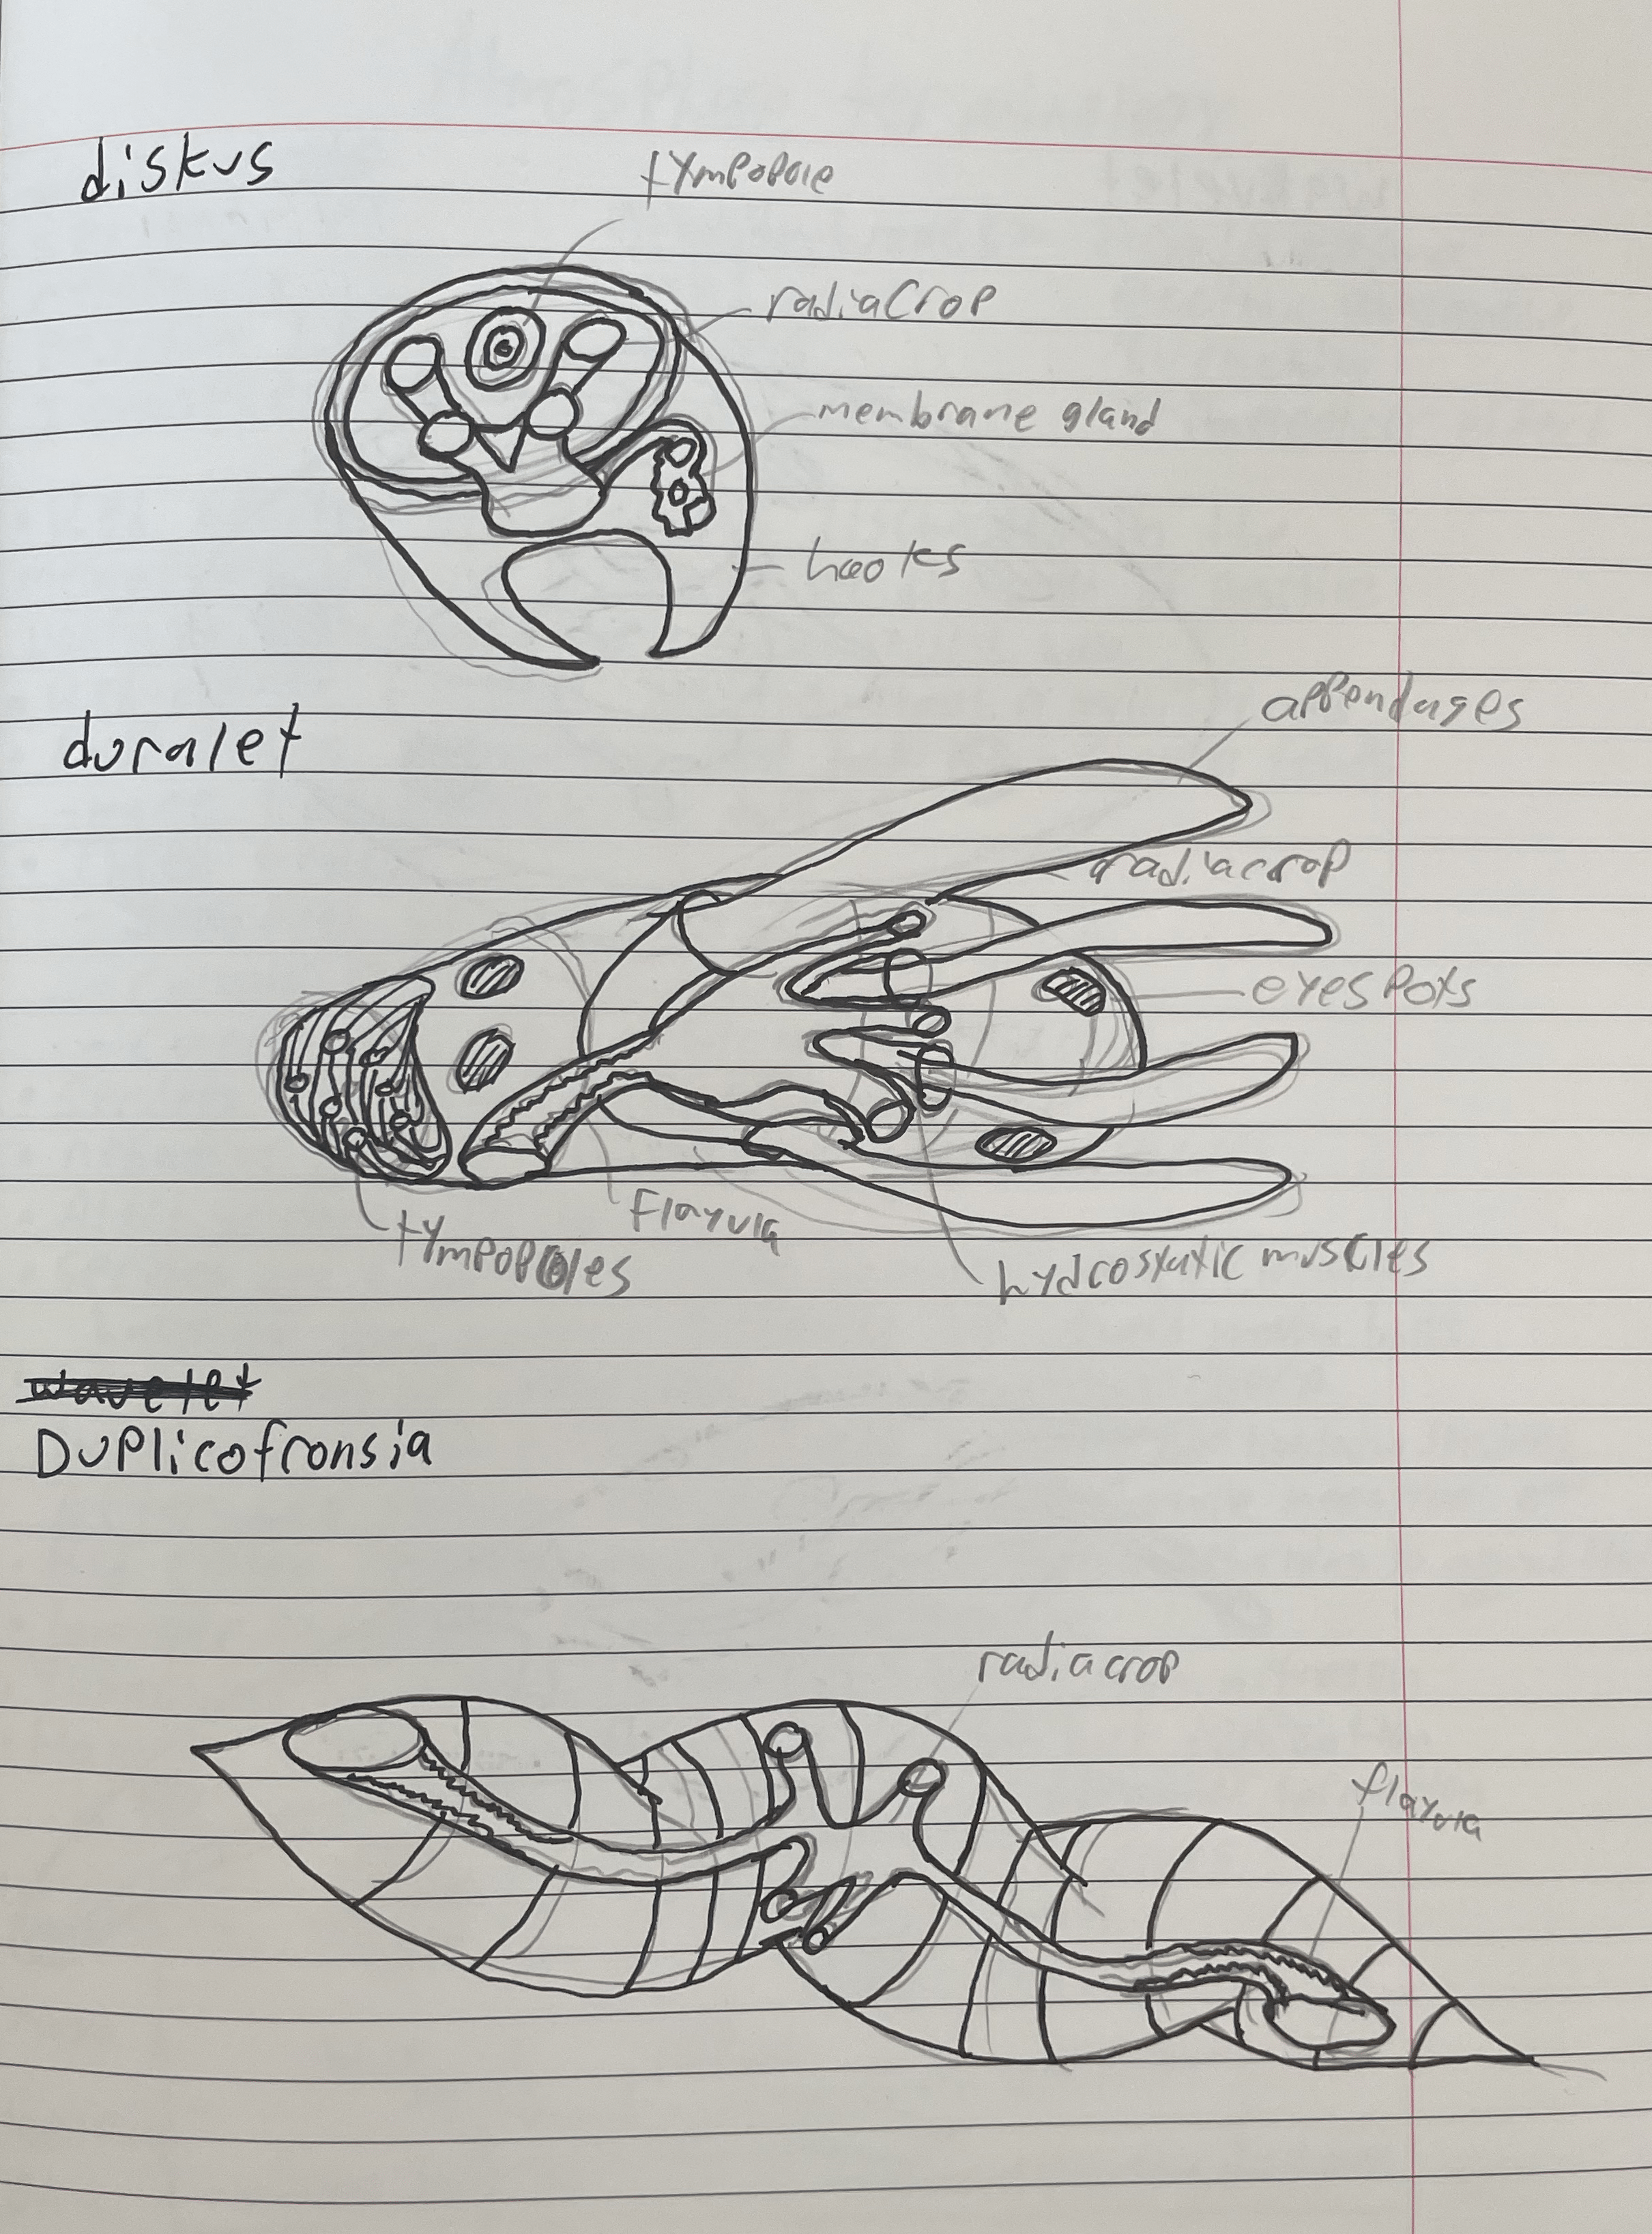 diskus
tympopole
radiacrop
membrane gland
hooks
duralet
appendages
radiacrop
eyespots
flayvia
tympopoles
hydrostatic muscles
wavelet
Duplicofronsia
radiacrop
flayvia